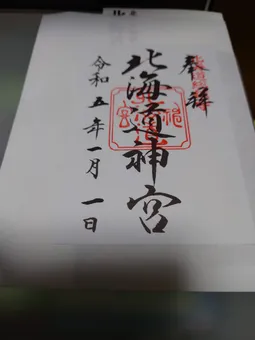 敬拝
北海道神宮
令和五年一月一日